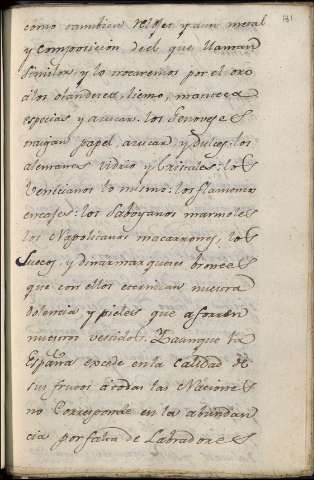 131
como tambien relojes y aun metal
y composicion del que llaman
similor, y lo trocaremos por el oro
a los olandeses, lienso, manteca
especias y azucar: los Genoveses
traigan papel, azucar, y dulces: los
alemanes vidrio y cristales: los
Venecianos lo mismo: los flamencos
encajes: los Saboyanos marmoles
los Napolitanos macarrones, los
Suecos, y dinamarqueses
que con ellos nuestra
dolencia y pieles que aforren
nuestros vestidos. Y aunque la
España excede en la calidad de
sus frutos á todas las Naciones
no corresponde en la abundan
cia por falta de Labradores